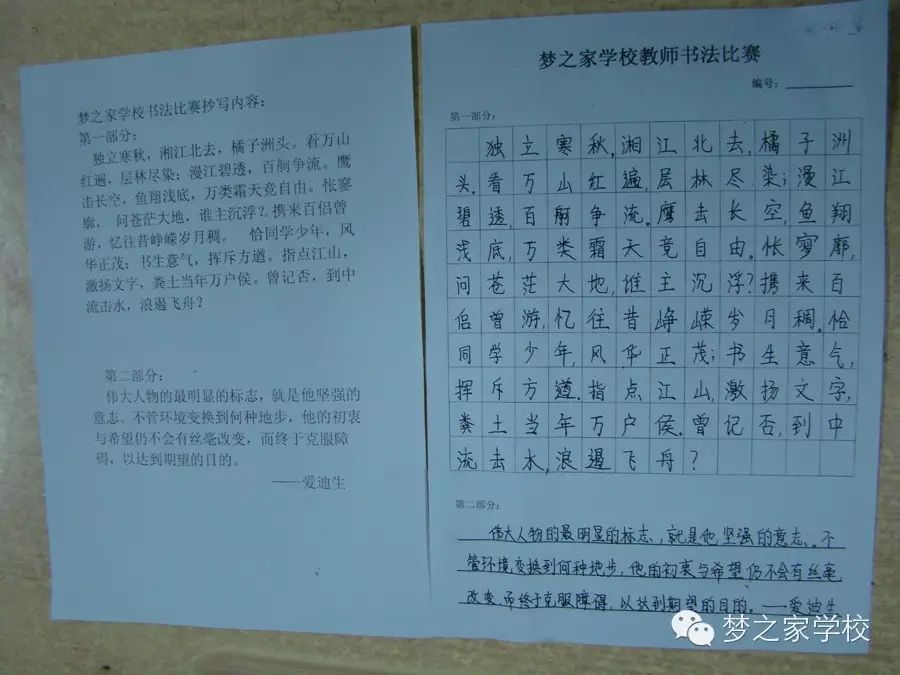 梦之家学校书法比赛抄写内容：
第一部分：
独立寒秋，湘江北去，橘子洲头。看万山
红遍，层林尽染；漫江碧透，百舸争流。鹰
击长空，鱼翔浅底，万类霜天竞自由。怅寥
廓， 问苍茫大地，谁主沉浮？携来百侣曾
游，忆往昔峥嵘岁月稠。 恰同学少年，风
华正茂；书生意气，挥斥方遒。指点江山，
激扬文字，粪土当年万户侯。曾记否，到中
流击水，浪遏飞舟？
第二部分：
伟大人物的最明显的标志，就是他坚强的
意志。不管环境变换到何种地步，他的初衷
与希望仍不会有丝毫改变，而终于克服障
碍，以达到期望的目的。
——爱迪生
梦之家学校教师书法比赛
编号：
第一部分：
独立寒秋，湘江北去，橘子洲
头。看万山红遍，层林尽染；漫江
碧透，百舸争流。鹰击长空，鱼翔
浅底，万类霜天竞自由。怅寥廓，
问苍茫大地，谁主沉浮？携来百
侣曾游，忆往昔峥嵘岁月稠。恰
同学少年，风华正茂；书生意气，
挥斥方遒。指点江山，激扬文字，
粪土当年万户侯。曾记否，到中
流击水，浪遏飞舟？
第二部分：
伟大人物的最明显的标志，就是他坚强的意志。不
管环境变换到何种地步，他的初衷与希望仍不会有丝毫
改变，而终于克服障碍，以达到期望的目的。——爱迪生
梦之家学校